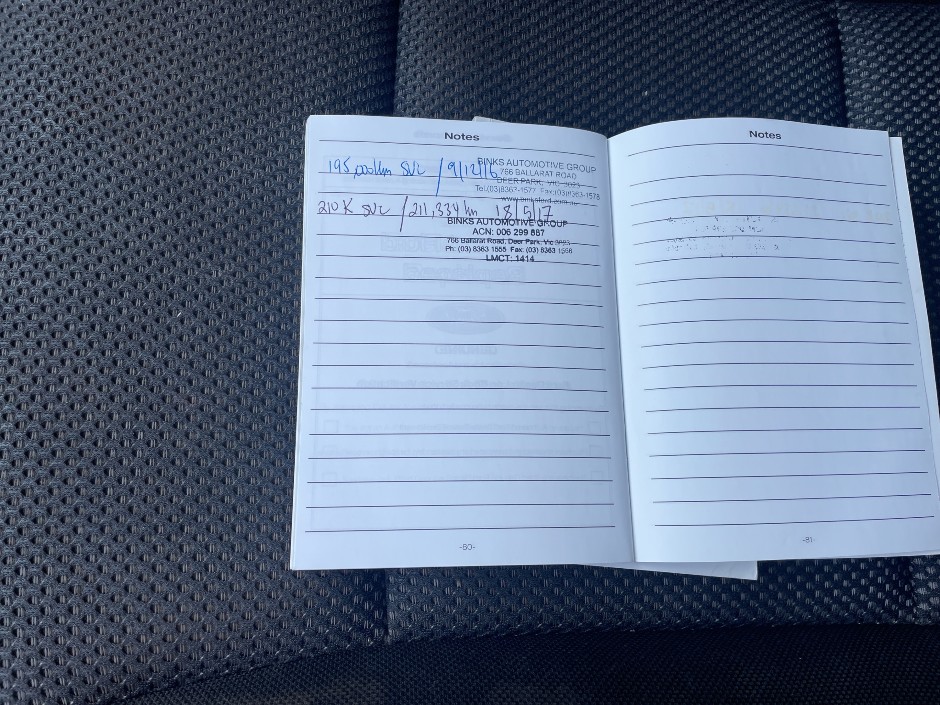 Notes
195,000km SVC / 9/12/16
BINKS AUTOMOTIVE GROUP
766 BALLARAT ROAD
DEER PARK, VIC 3023
Tel:(03)8363-1577 Fax:(03)8363-1578
www.binksford.com.au
210K SVC / 211,334 km 18/5/17
BINKS AUTOMOTIVE GROUP
ACN: 006 299 887
766 Ballarat Road, Deer Park, Vic 3023
Ph: (03) 8363 1555 Fax: (03) 8363 1566
LMCT: 1414
-80-
Notes
-81-